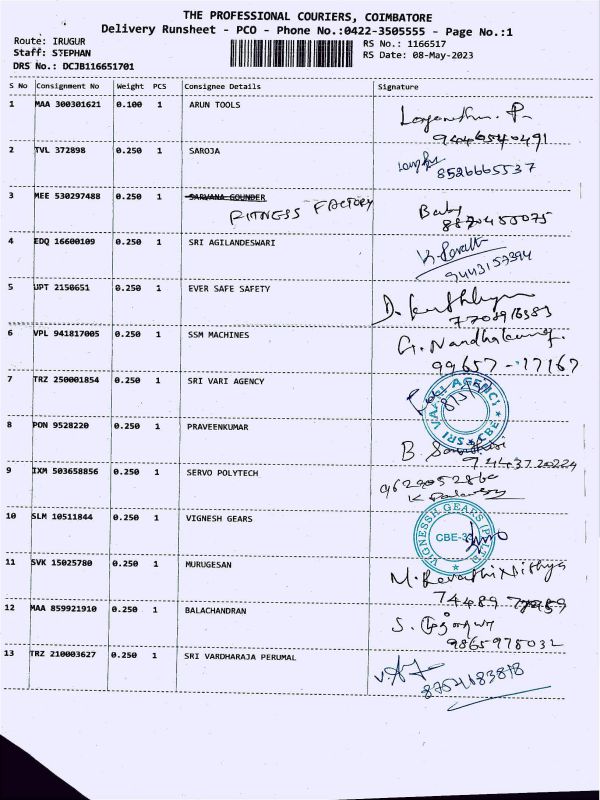 THE PROFESSIONAL COURIERS, COIMBATORE
Delivery Runsheet - PCO - Phone No.:0422-3505555 - Page No.:1
Route: IRUGUR
RS No.: 1166517
Staff: STEPHAN
RS Date: 08-May-2023
DRS No.: DCJB116651701
S No Consignment No Weight PCS Consignee Details Signature
1 MAA 300301621 0.100 1 ARUN TOOLS
2 TVL 372898 0.250 1 SAROJA
8526665537
3 MEE 530297488 0.250 1 SARVANA GOUNDER
FITNESS FACTORY Baby
4 EDQ 16600109 0.250 1 SRI AGILANDESWARI
9443157394
5 JPT 2150651 0.250 1 EVER SAFE SAFETY
6 VPL 941817005 0.250 1 SSM MACHINES
G. Nandhakumar.
99657-17167
7 TRZ 250001854 0.250 1 SRI VARI AGENCY
SRI VARI AGENCY CBE
8 PON 9528220 0.250 1 PRAVEENKUMAR
9 IXM 503658856 0.250 1 SERVO POLYTECH
10 SLM 10511844 0.250 1 VIGNESH GEARS
VIGNESSH GEARS (P) LTD
11 SVK 15025780 0.250 1 MURUGESAN
M. Revathi Nithya
12 MAA 859921910 0.250 1 BALACHANDRAN
9865978032
13 TRZ 210003627 0.250 1 SRI VARDHARAJA PERUMAL